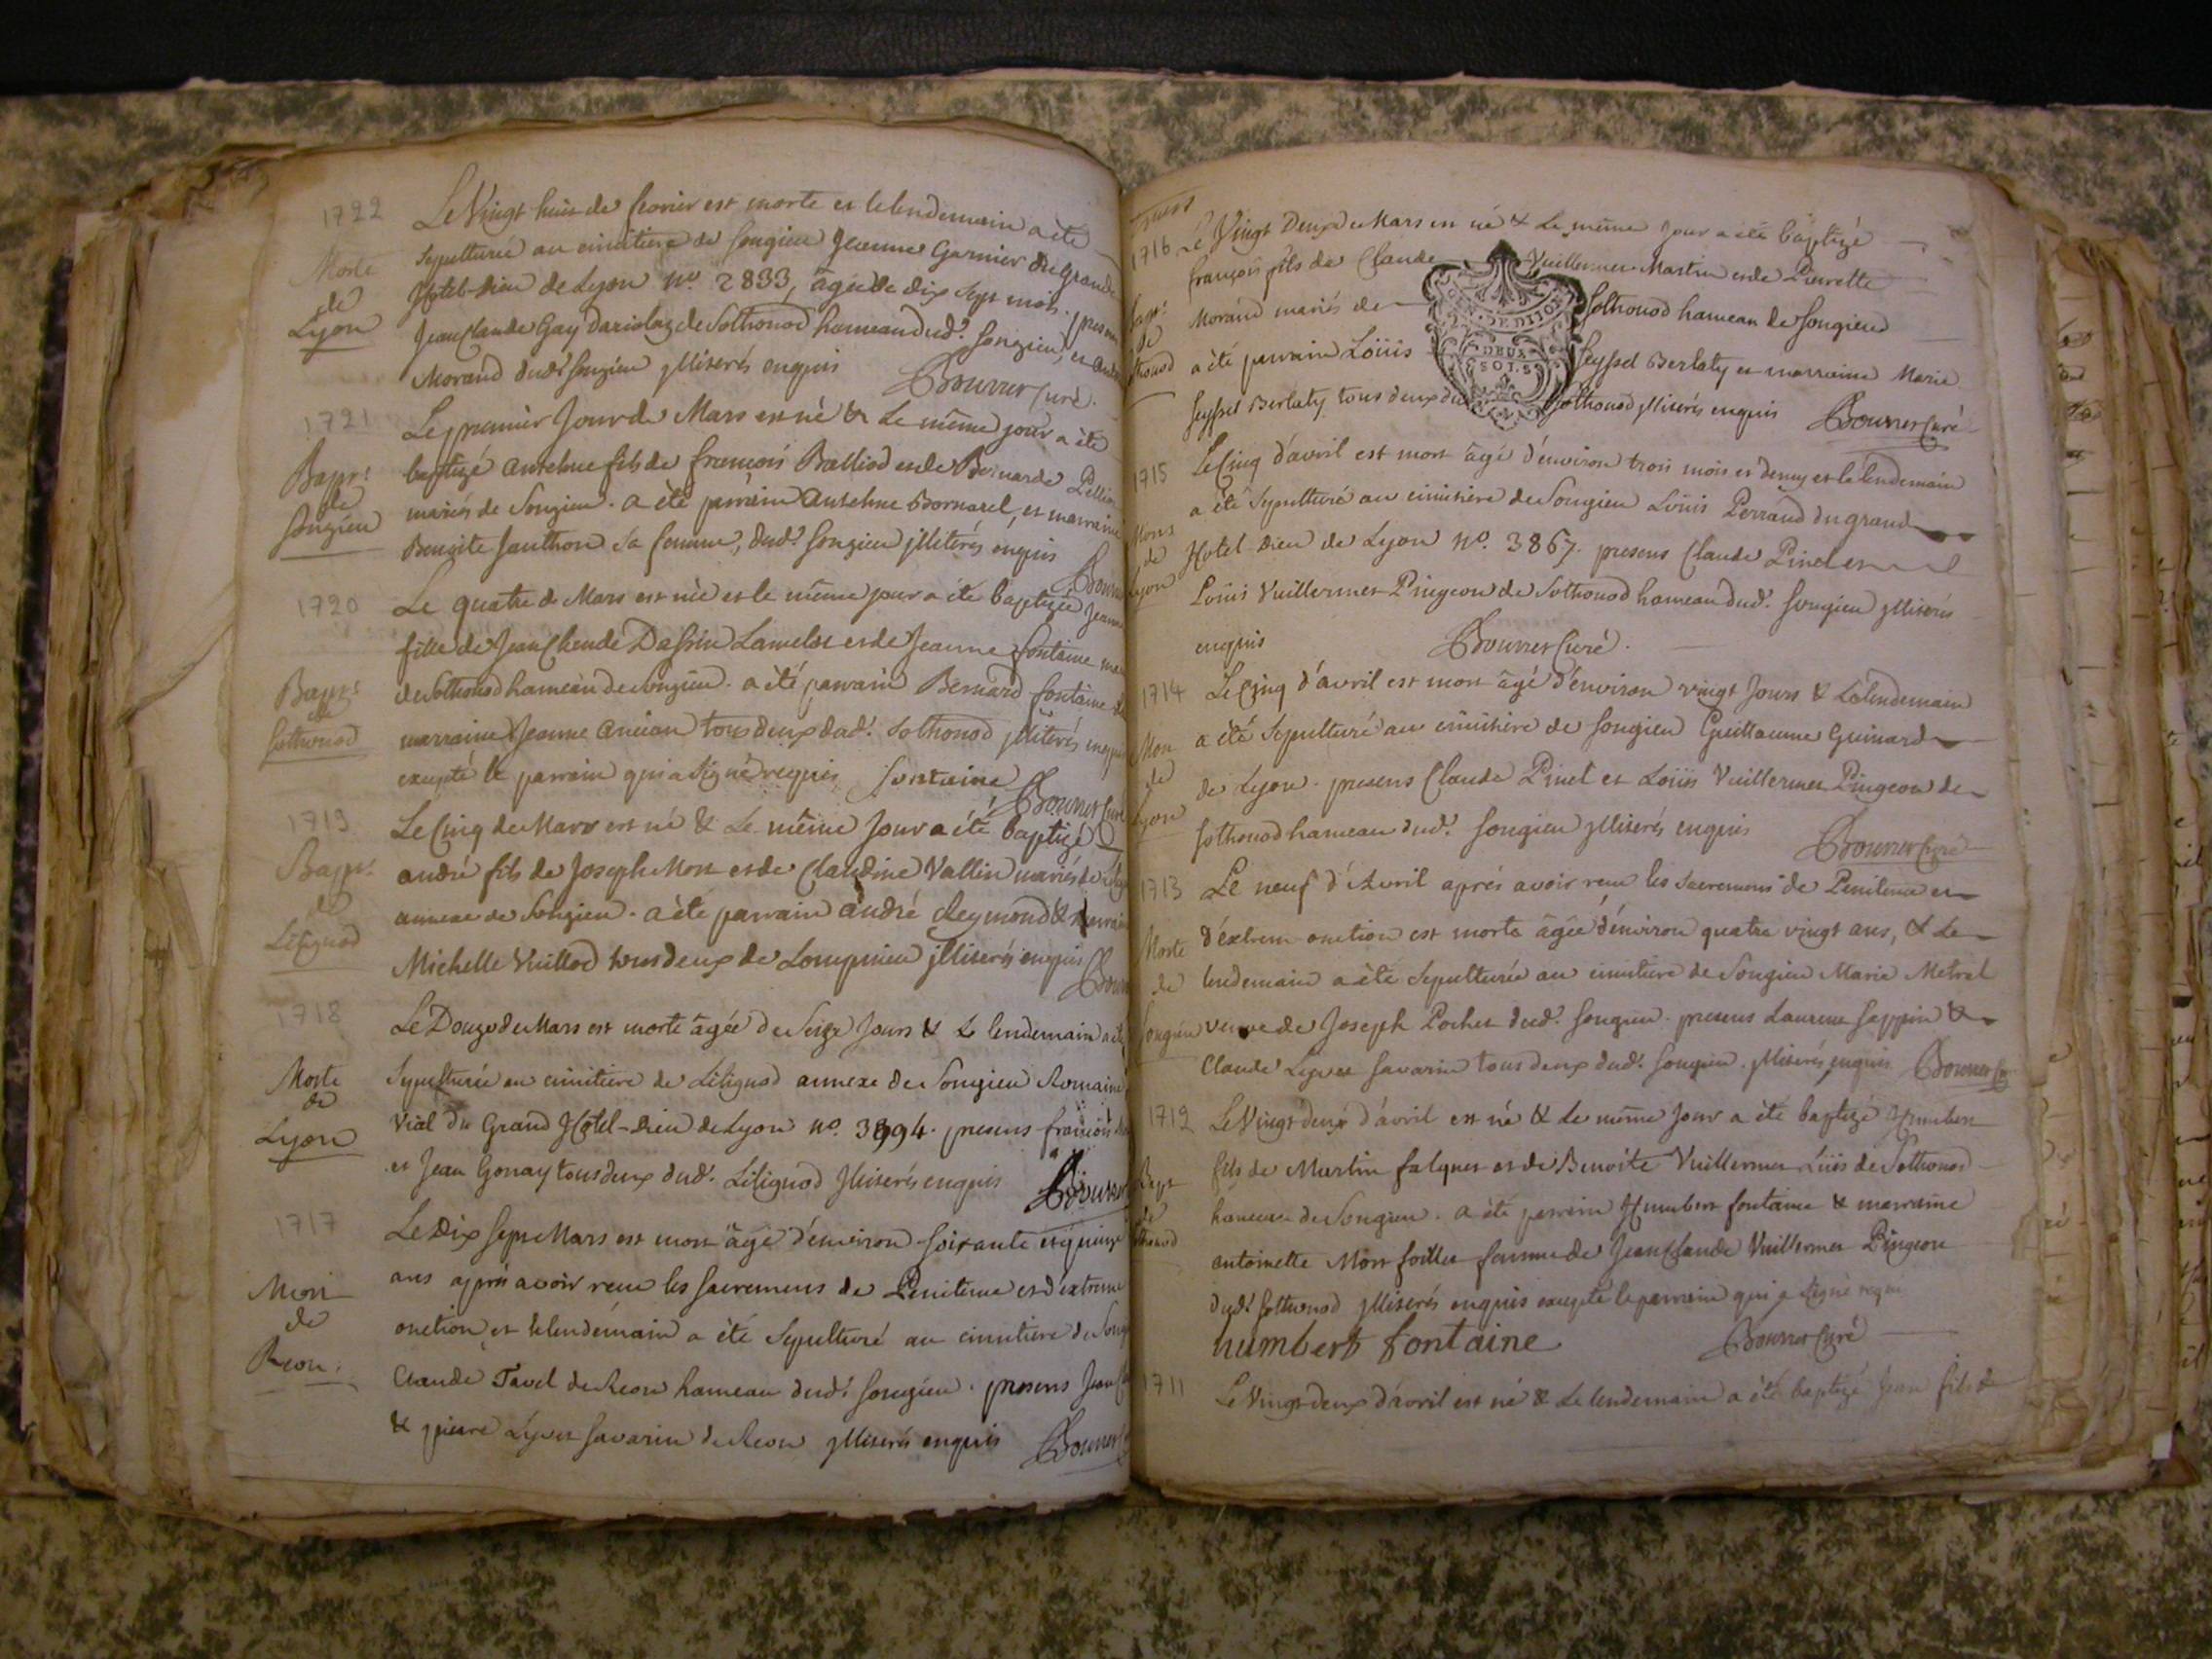 1722
Le Vingt huit de fevrier est morte et le lendemain a été
Morte
de
Lyon
Sepulturée au cimitiere de Songieu Jeanne Garnier du grand
Hotel-Dieu de Lyon No. 2833, agée de dix Sept mois. presens
Jean Claude Gay Dariolaz de Sothonod hameau dud.t Songieu, et
Morand dud.t Songieu jlliterés enquis Bourrer Curé.
1721
Le premier Jour de Mars est né & Le même jour a été
Bapt.
de
Songieu
baptizé antelme fils de françois Balliod et de Bernarde
mariés de Songieu. a été parrain antelme Bornarel, et marraine
Benoite Jauthon Sa femme, dud.t Songieu jlliterés enquis
1720
Le quatre de Mars est née et le même jour a été baptizée Jeanne
Bapt.
de
Sothonod
fille de Jean Claude Dassin Lamelox et de Jeanne fontaine
de Sothonod hameau de Songieu. a été parrain Bernard fontaine
marraine Jeanne ancian tous deux dud.t Sothonod jlliterés
excepté le parrain qui a Signé requis fontaine Bourrer Curé
1719
Le Cinq de Mars est né & Le même Jour a été baptizé
Bapt.
de
Litignod
andré fils de Joseph Mon et de Claudine Vallin mariés de
annexe de Songieu. a été parrain andré Reymond &
Michelle Vuillod tous deux de Lompnieu jlliterés enquis
1718
Le Douze de Mars est morte agée de Seize Jours & Le lendemain a été
Morte
de
Lyon
Sepulturée au cimitiere de Litignod annexe de Songieu Romaine
Vial du Grand Hotel-Dieu de Lyon No. 3894. presens françois
et Jean Gonay tous deux dud.t Litignod jlliterés enquis
1717
Le Dix Sept Mars est mort agé d'environ soixante et quinze
Mort
de
Reon.
ans après avoir receu les Sacremens de Penitence et d'extreme
onction et le lendemain a été Sepulturé au cimitiere de
Claude Tavel de Reon hameau dud.t Songieu. presens
& pierre Lyvet Savarin de Reon jlliterés enquis Bourrer
1716
Le Vingt Deux de Mars est né & Le même Jour a été baptizé
françois fils de Claude Vuillermet-Martin et de Pierrette
Bapt.
de
GEN. DE DIJON
DEUX
SOLS
Morand mariés de Sothonod hameau de Songieu
a été parrain Loüis Seyssel Berlaty et marraine Marie
Seyssel Berlaty tous deux du Sothonod jlliterés enquis Bourrer Curé
1715
Le Cinq d'avril est mort agé d'environ trois mois et demy et le lendemain
Mort
de
Lyon
a été Sepulturé au cimitiere de Songieu Loüis Perraud du grand
Hotel-Dieu de Lyon No. 3867. presens Claude Pinel et
Loüis Vuillermet-Pingeon de Sothonod hameau dud.t Songieu jlliterés
enquis Bourrer Curé.
1714
Le Cinq d'avril est mort agé d'environ vingt Jours & Le lendemain
Mort
de
Lyon
a été Sepulturé au cimitiere de Songieu Guillaume Guinard
de Lyon. presens Claude Pinel et Loüis Vuillermet Pingeon de
Sothonod hameau dud.t Songieu jlliterés enquis Bourrer Curé
1713
Le neuf d'Avril après avoir receu les Sacremens de Penitence et
Morte
de
Songieu
d'extreme onction est morte agée d'environ quatre vingt ans, & Le
lendemain a été Sepulturée au cimitiere de Songieu Marie Metral
veuve de Joseph Pochet dud.t Songieu. presens Laurent Sappin &
Claude Lyvet Savarin tous deux dud.t Songieu. jlliterés enquis Bourrer
1712
Le Vingt deux d'avril est né & Le même Jour a été baptizé Humbert
Bapt
de
fils de Martin falquet et de Benoite Vuillermet Loüis de Sothonod
hameau de Songieu. a été parrain Humbert fontaine & marraine
antoinette Mon foillet femme de Jean Claude Vuillermet Pingeon
dud.t Sothonod jlliterés enquis excepté le parrain qui a Signé requis
humbert fontaine Bourrer Curé
1711
Le Vingt deux d'avril est né & Le lendemain a été baptizé Jean fils de